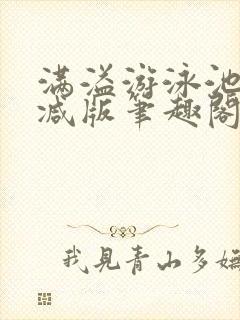 满溢游泳池
减版笔趣阁
我见青山多妩